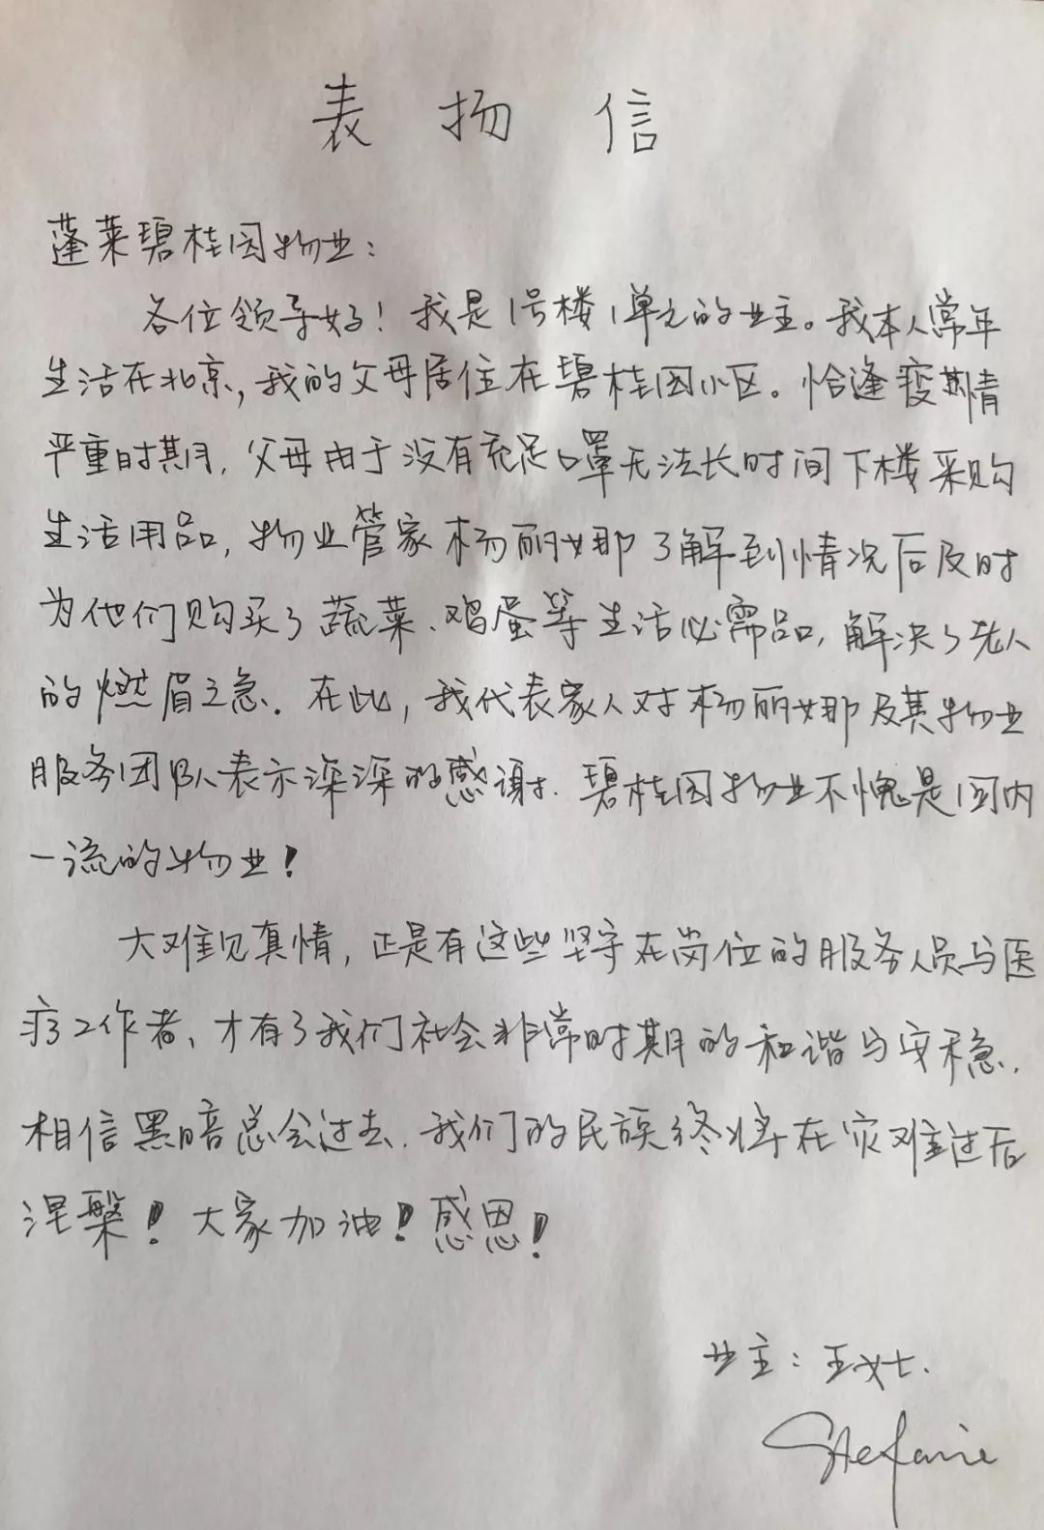 表扬信
蓬莱碧桂园物业：
各位领导好！我是1号楼1单元的业主。我本人常年
生活在北京，我的父母居住在碧桂园小区。恰逢疫情
严重时期，父母由于没有充足口罩无法长时间下楼采购
生活用品，物业管家杨丽娜了解到情况后及时
为他们购买了蔬菜、鸡蛋等生活必需品，解决了老人
的燃眉之急。在此，我代表家人对杨丽娜及其物业
服务团队表示深深的感谢。碧桂园物业不愧是国内
一流的物业！
大难见真情，正是有这些坚守在岗位的服务人员与医
疗工作者，才有了我们社会非常时期的和谐与安稳。
相信黑暗总会过去，我们的民族终将在灾难过后
涅槃！大家加油！感恩！
业主：王女士.
Stefanie